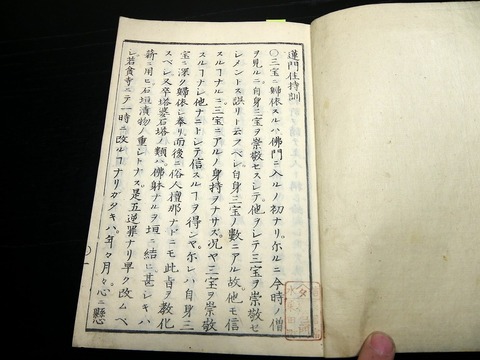 蓮門住持訓
〇三宝ニ歸依スルハ佛門ニ入ルノ初ナリ。尓ルニ今時ノ僧
ヲ見ルニ自身三宝ヲ崇敬セスレテ。他ヲレテ三宝ヲ崇敬セ
レメントス誤リト云フベレ。自身三宝ノ數ニアル故。他モ信
スルヿナルニ三宝ニアルノ身持ヲナサズ。况ヤ三宝ヲ崇敬
スルヿナレ。他ナニトレテ信スルヿヲ得ンヤ。尓レハ自身三
宝ニ深ク歸依レ奉リ。而後ニ俗人檀那ナドニモ此旨ヲ教化
スベレ。又卒塔婆石塔ノ類ハ。佛躰ナルヲ垣ニ結ヒ。甚レキハ
薪ニ用ヒ。石垣漬物ノ重レトナス。是五逆罪ナリ。早ク改ムベ
レ。若貪寺ニテ一時ニ改ルヿナリガタキハ。年々月々心ニ懸